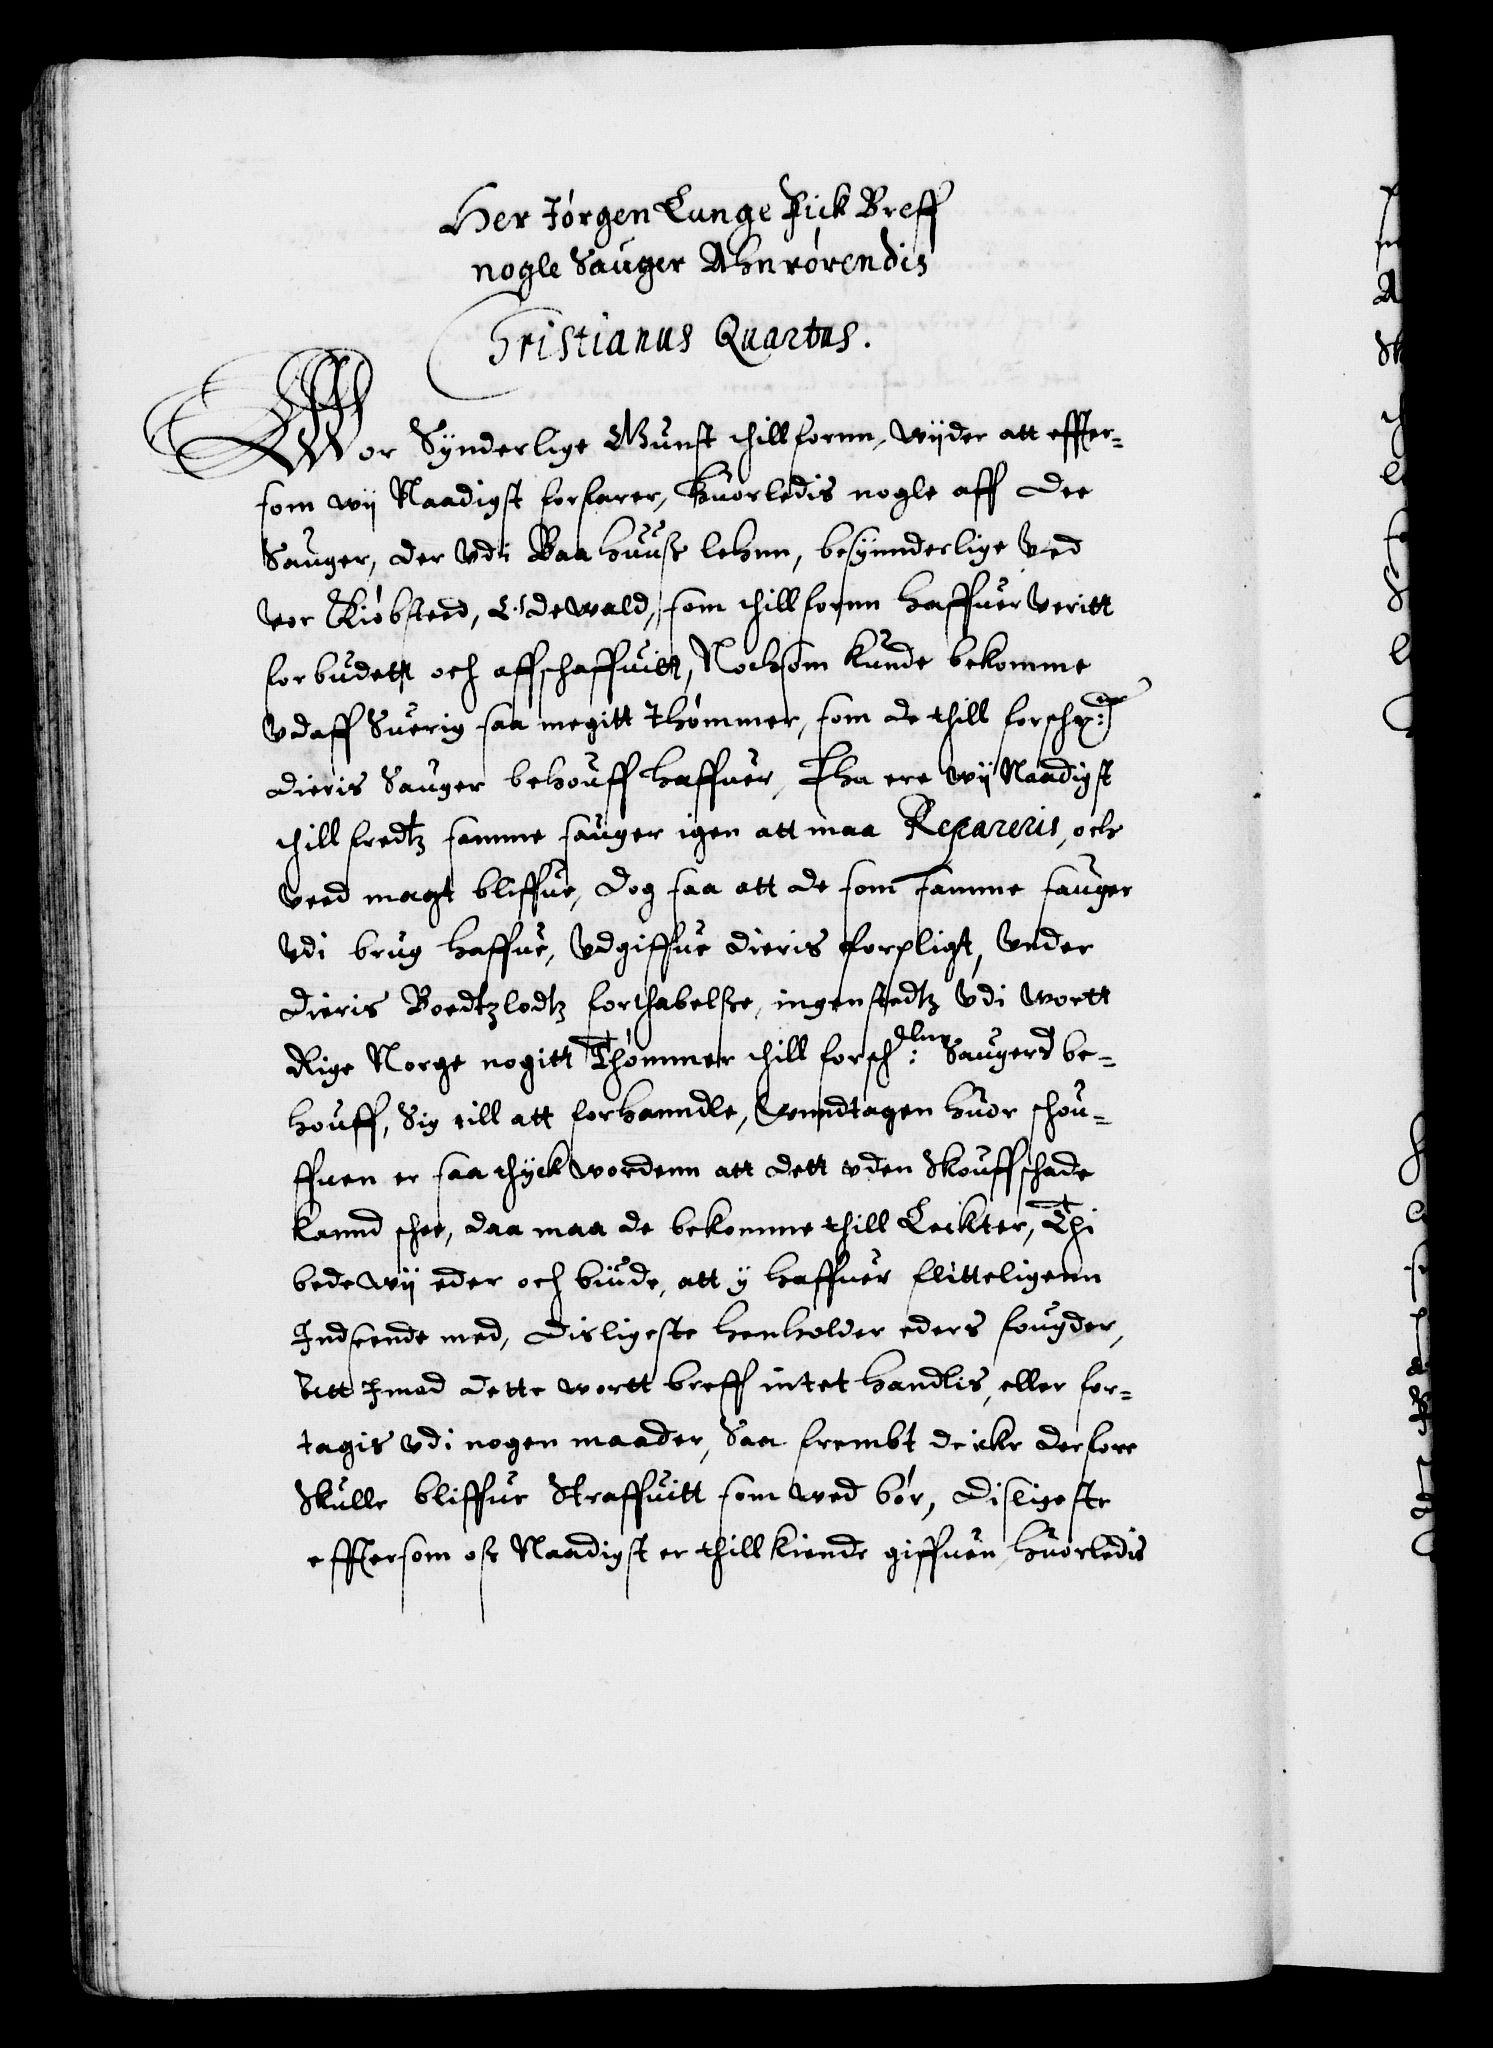 Her Jörgen Lunge Fick Breff
nogle Sauger Ahnrörendis
Christianus Quartus.
Wor Synderlige Gunst thillfornn, Wijder att effter-
som wij Naadigst forfarer, huorledis nogle aff Dee
Sauger, der vdi Baahuuss lehnn, besynnderlige ved
vor Kiöbsteed, Oddewald, som thillfornn haffuer veritt
forbudett och affschaffuitt, Nochsom kunde bekomme
vdaff Suerig saa megitt Thömmer, som de thill forsch:ne
dieris Sauger behouff haffuer, Tha ere wij Naadigst
thill fredtz samme sauger igen att maa Repareris, och
veed magt bliffue, dog saa att de som samme sauger
vdi brug haffue, vdgiffue dieris forpligt, vnder
dieris Boedtzlodtz forthabelsse, ingenstedtz vdi wortt
Rige Norge nogitt Thömmer thill forsch: Saugers be-
houff, Sig till att forhanndle, Wnndtagen huor schou-
ffuen er saa thyck wordenn att dett vden Skouffschade
kannd schee, daa maa de bekomme thill Leikter, Thi
bede wij eder och biude, att y haffuer flitteligenn
Indseende med, disligeste henholder eders fougder,
Att Imod dette wortt breff intet handlis, eller for-
tagis vdi nogen maader, Saa frembt de icke derfore
Skulle bliffue Straffuitt som wed bör, disligeste
efftersom oss Naadigst er thill kiende giffuen, huorledis